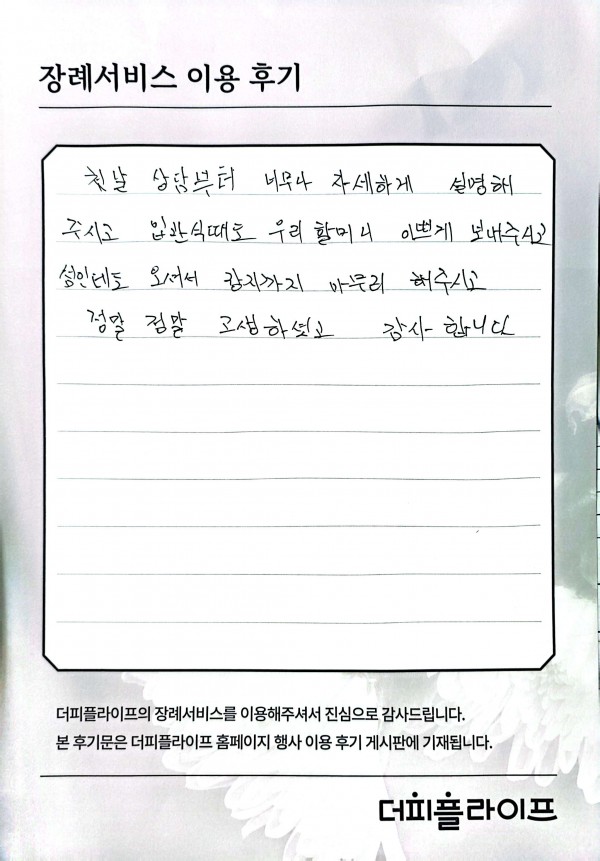 장례서비스 이용 후기
첫날 상담부터 너무나 자세하게 설명해
주시고 입관식때도 우리 할머니 이쁘게 보내주시고
설인데도 오셔서 장지까지 마무리 해주시고
정말 정말 고생하셨고 감사합니다
더피플라이프의 장례서비스를 이용해주셔서 진심으로 감사드립니다.
본 후기문은 더피플라이프 홈페이지 행사 이용 후기 게시판에 기재됩니다.
더피플라이프